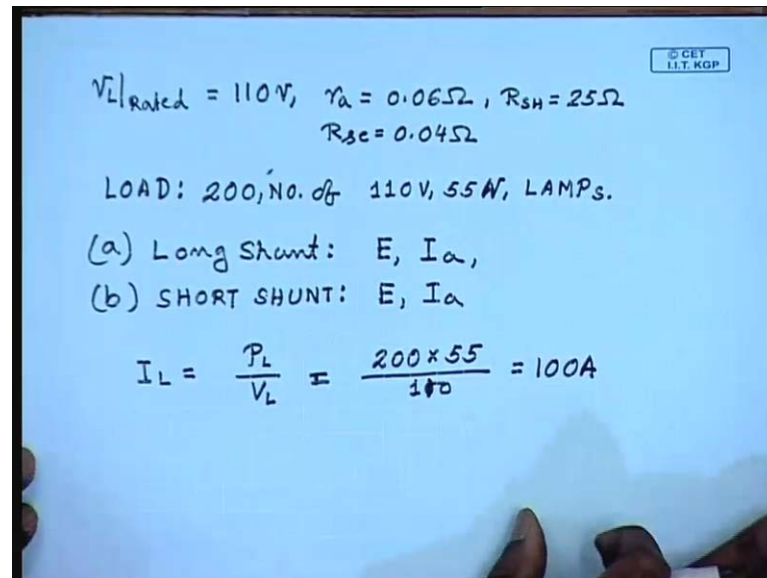 © CET
I.I.T. KGP
VL|Rated = 110V, ra = 0.06Ω, RSH = 25Ω
Rse = 0.04Ω
LOAD: 200, NO. of 110V, 55W, LAMPs.
(a) Long Shunt: E, Ia,
(b) SHORT SHUNT: E, Ia
IL = PL/VL = 200×55/110 = 100A